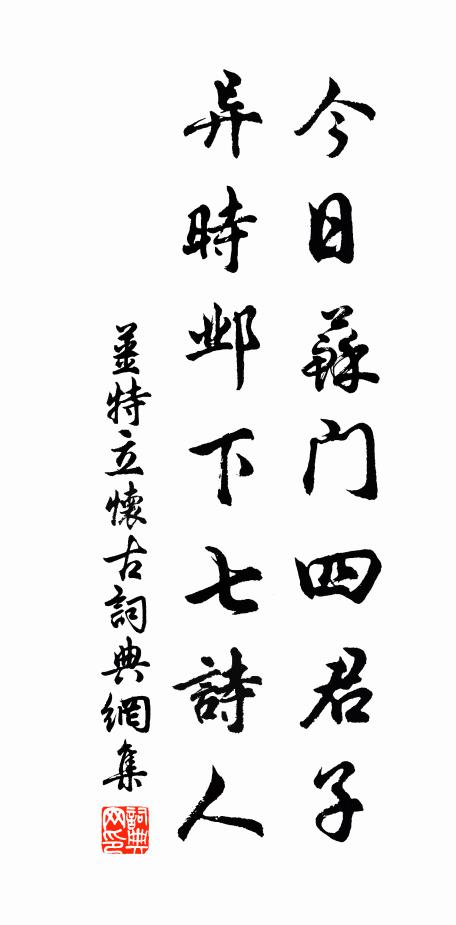 今日蘇门四君子
异時邺下七詩人
姜特立懷古詞典網集
詞典网印